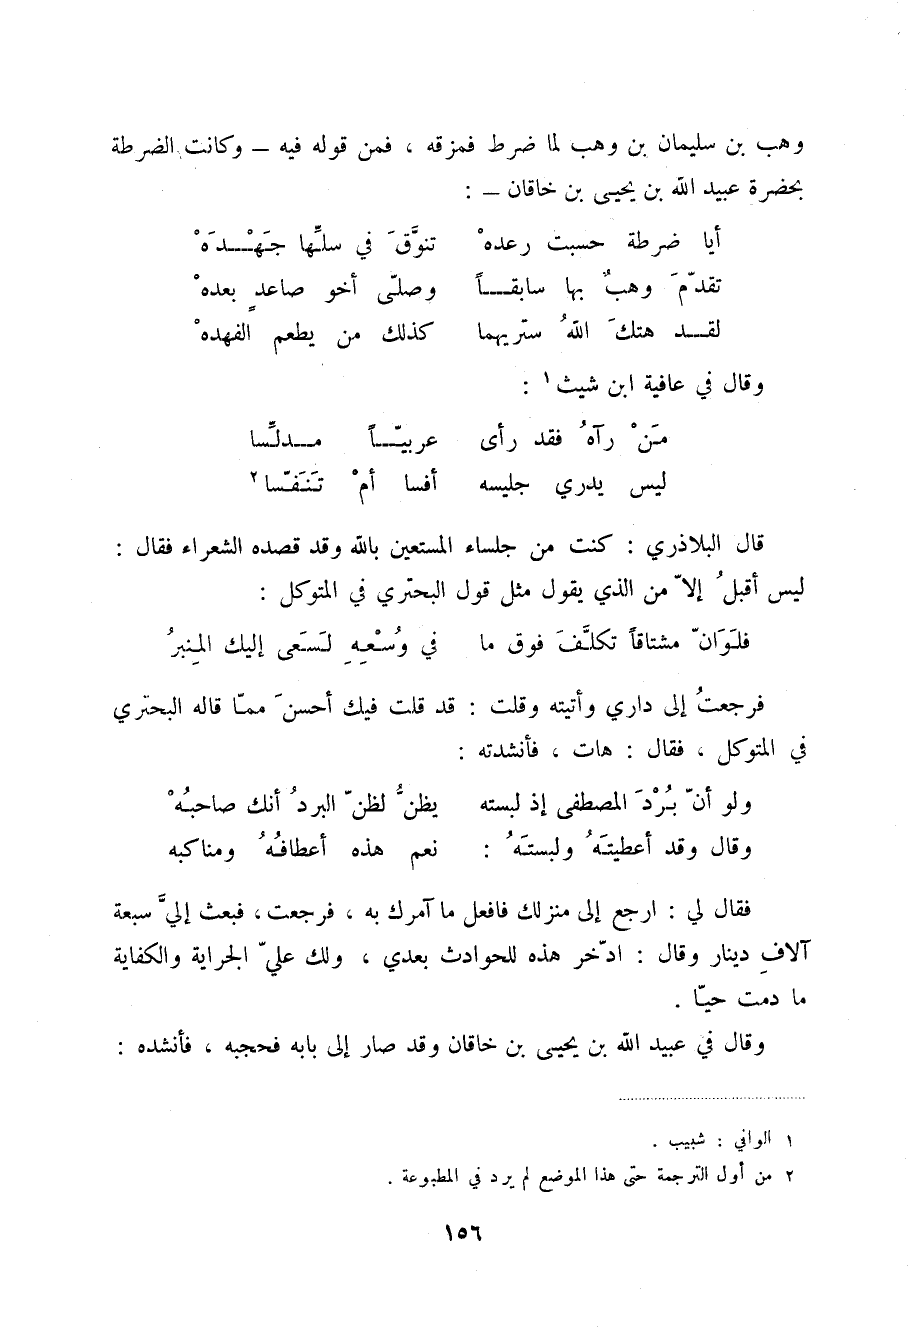 وهب بن سليمان بن وهب لما ضرط فمزقه ، فمن قوله فيه – وكانت الضرطة
بحضرة عبيد الله بن يحيى بن خاقان – :
أيا ضرطة حسبت رعدهْ تنوَّقَ في سلِّها جَهْدَهْ
تقدّمَ وهبٌ بها سابقاً وصلّى أخو صاعدٍ بعدهْ
لقد هتكَ اللهُ ستريهما كذلك من يطعم الفهدهْ
وقال في عافية ابن شيث١ :
مَنْ رآهُ فقد رأى عربيّاً مدلِّسا
ليس يدري جليسه أفسا أمْ تَنَفّسا٢
قال البلاذري : كنت من جلساء المستعين بالله وقد قصده الشعراء فقال :
ليس أقبلُ إلاّ من الذي يقول مثل قول البحتري في المتوكل :
فلَوَانّ مشتاقاً تكلَّفَ فوق ما في وُسْعِهِ لَسَعَى إليك المِنبرُ
فرجعتُ إلى داري وأتيته وقلت : قد قلت فيك أحسنَ ممّا قاله البحتري
في المتوكل ، فقال : هات ، فأنشدته :
ولو أنّ بُرْدَ المصطفى إذ لبسته يظنُّ لظنّ البردُ أنك صاحبُهْ
وقال وقد أعطيتَهُ ولبستَهُ : نعم هذه أعطافُهُ ومناكبه
فقال لي : ارجع إلى منزلك فافعل ما آمرك به ، فرجعت ، فبعث إليَّ سبعة
آلافِ دينار وقال : ادّخر هذه للحوادث بعدي ، ولك عليّ الجراية والكفاية
ما دمت حيّا .
وقال في عبيد الله بن يحيى بن خاقان وقد صار إلى بابه فحجبه ، فأنشده :
١ الوافي : شبيب .
٢ من أول الترجمة حتى هذا الموضع لم يرد في المطبوعة .
١٥٦